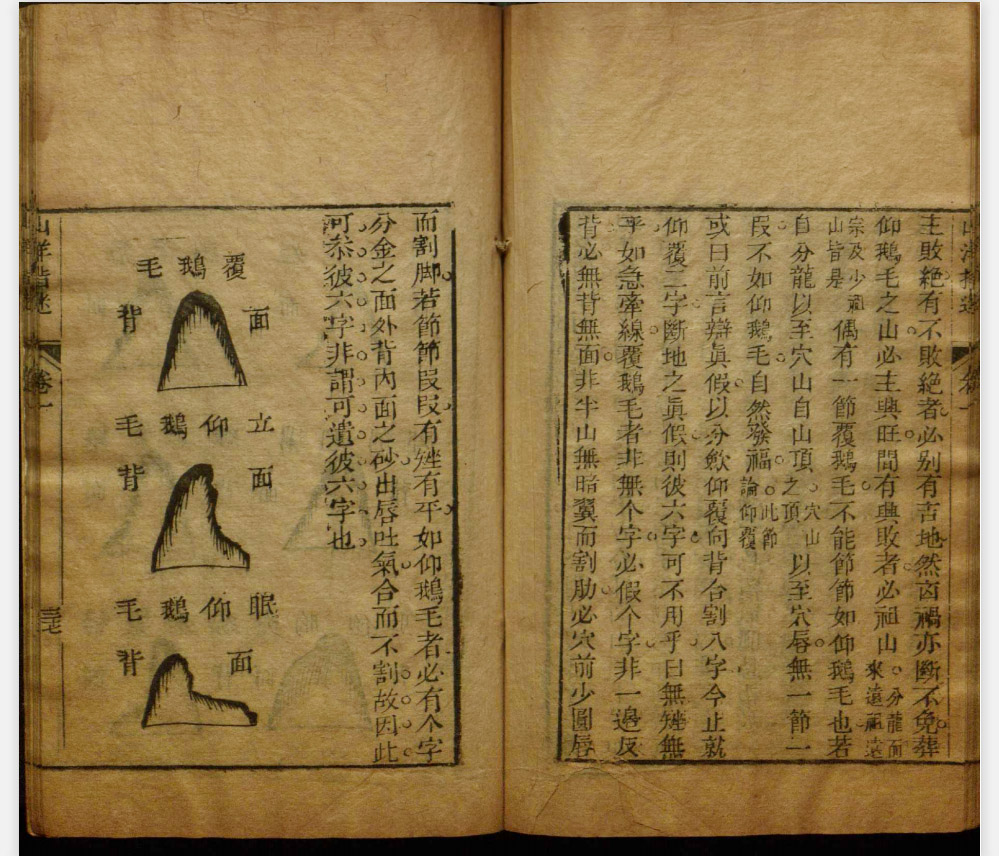 主敗絕有不敗絕者必别有吉地然卤禍亦斷不免葬
仰鵝毛之山必主興旺間有興敗者必祖山來遠祖遠
分龍面
宗及少祖
山皆是
偶有一節覆鵝毛不能節節如仰鵝毛也若
自分龍以至穴山自山頂
穴山
之頂
以至穴唇無一節一
叚不如仰鵝毛自然發福
此節
論仰覆
或曰前言辯眞假以分歛仰覆向背合割八字今止就
仰覆二字斷地之眞假則彼六字可不用乎曰無矬無
平如急牽線覆鵝毛者非無个字必假个字非一邉反
背必無背無面非半山無暗翼而割肋必穴前少圓唇
而割脚若節節叚叚有矬有平如仰鵝毛者必有个字
分金之面外背內面之砂出唇吐氣合而不割故因此
可叅彼六字非謂可遺彼六字也
覆鵝毛
面
背
立仰鵝毛
面
背
眠仰鵝毛
面
背
卷一